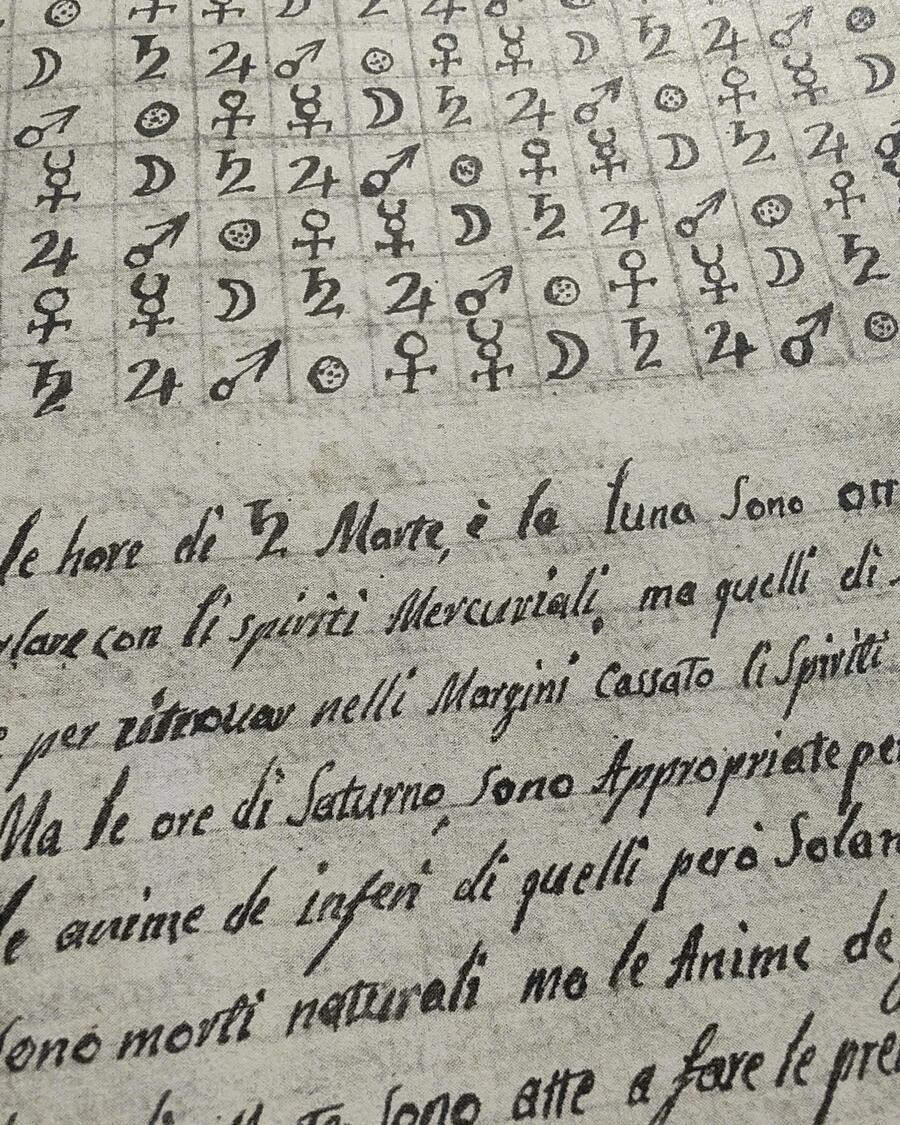 ☉ ♀ ☿ ☽ ♄ ♃ ♂ ☉
☽ ♄ ♃ ♂ ☉ ♀ ☿ ☽ ♄ ♃ ♂ ☉
♂ ☉ ♀ ☿ ☽ ♄ ♃ ♂ ☉ ♀ ☿ ☽
☿ ☽ ♄ ♃ ♂ ☉ ♀ ☿ ☽ ♄ ♃ ♂
♃ ♂ ☉ ♀ ☿ ☽ ♄ ♃ ♂ ☉ ♀
♀ ☿ ☽ ♄ ♃ ♂ ☉ ♀ ☿ ☽ ♄
♄ ♃ ♂ ☉ ♀ ☿ ☽ ♄ ♃ ♂ ☉
le hore di ♄ Marte, è la luna Sono
con li spiriti Mercuriali, ma quelli di
per ritrouar nelli Margini Cassato li Spiriti
Ma le ore di Saturno, Sono Appropriate per
le anime de inferi di quelli però Solan
Sono morti naturali ma le Anime de
Sono atte a fare le pre